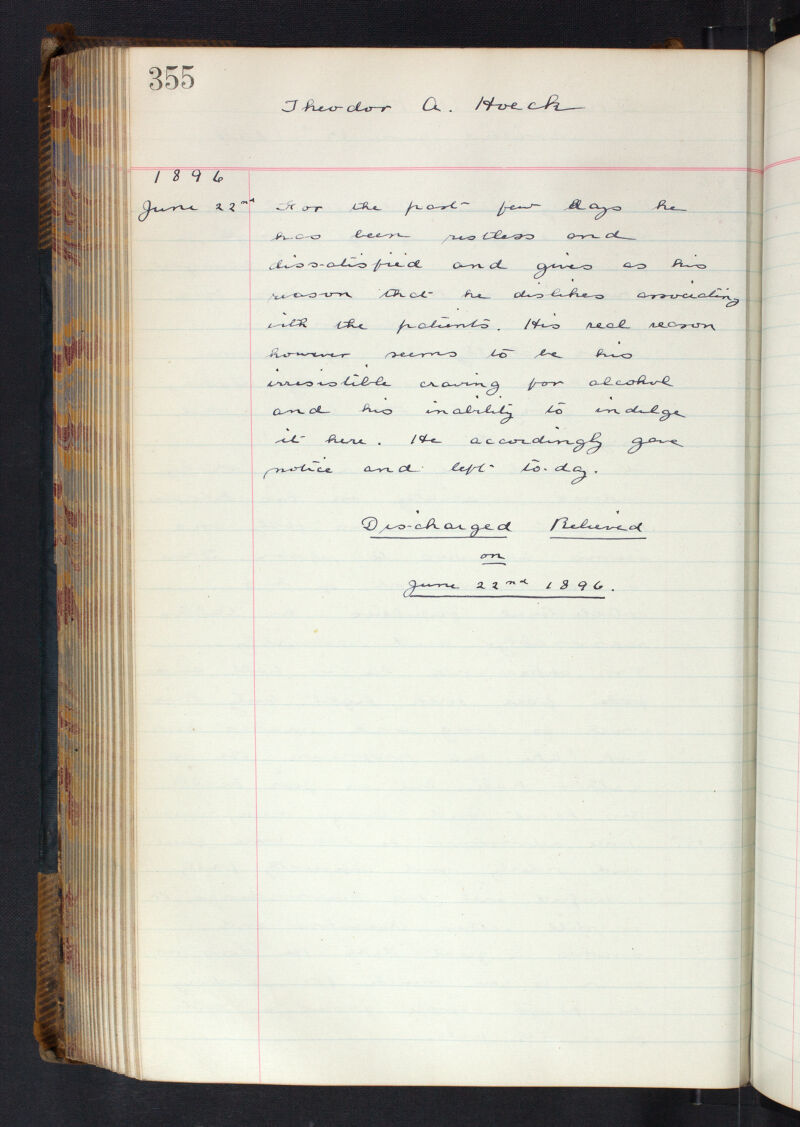 355
Theodor A. Hoeck
1896
June 22nd For the past few days he
has been restless and
dissatisfied and gives as his
reason that he dislikes associating
with the patients. His real reason
however seems to be his
irresistible craving for alcohol
and his inability to indulge
it here. He accordingly gave
notice and left to-day.
Discharged Relieved
on
June 22nd 1896.